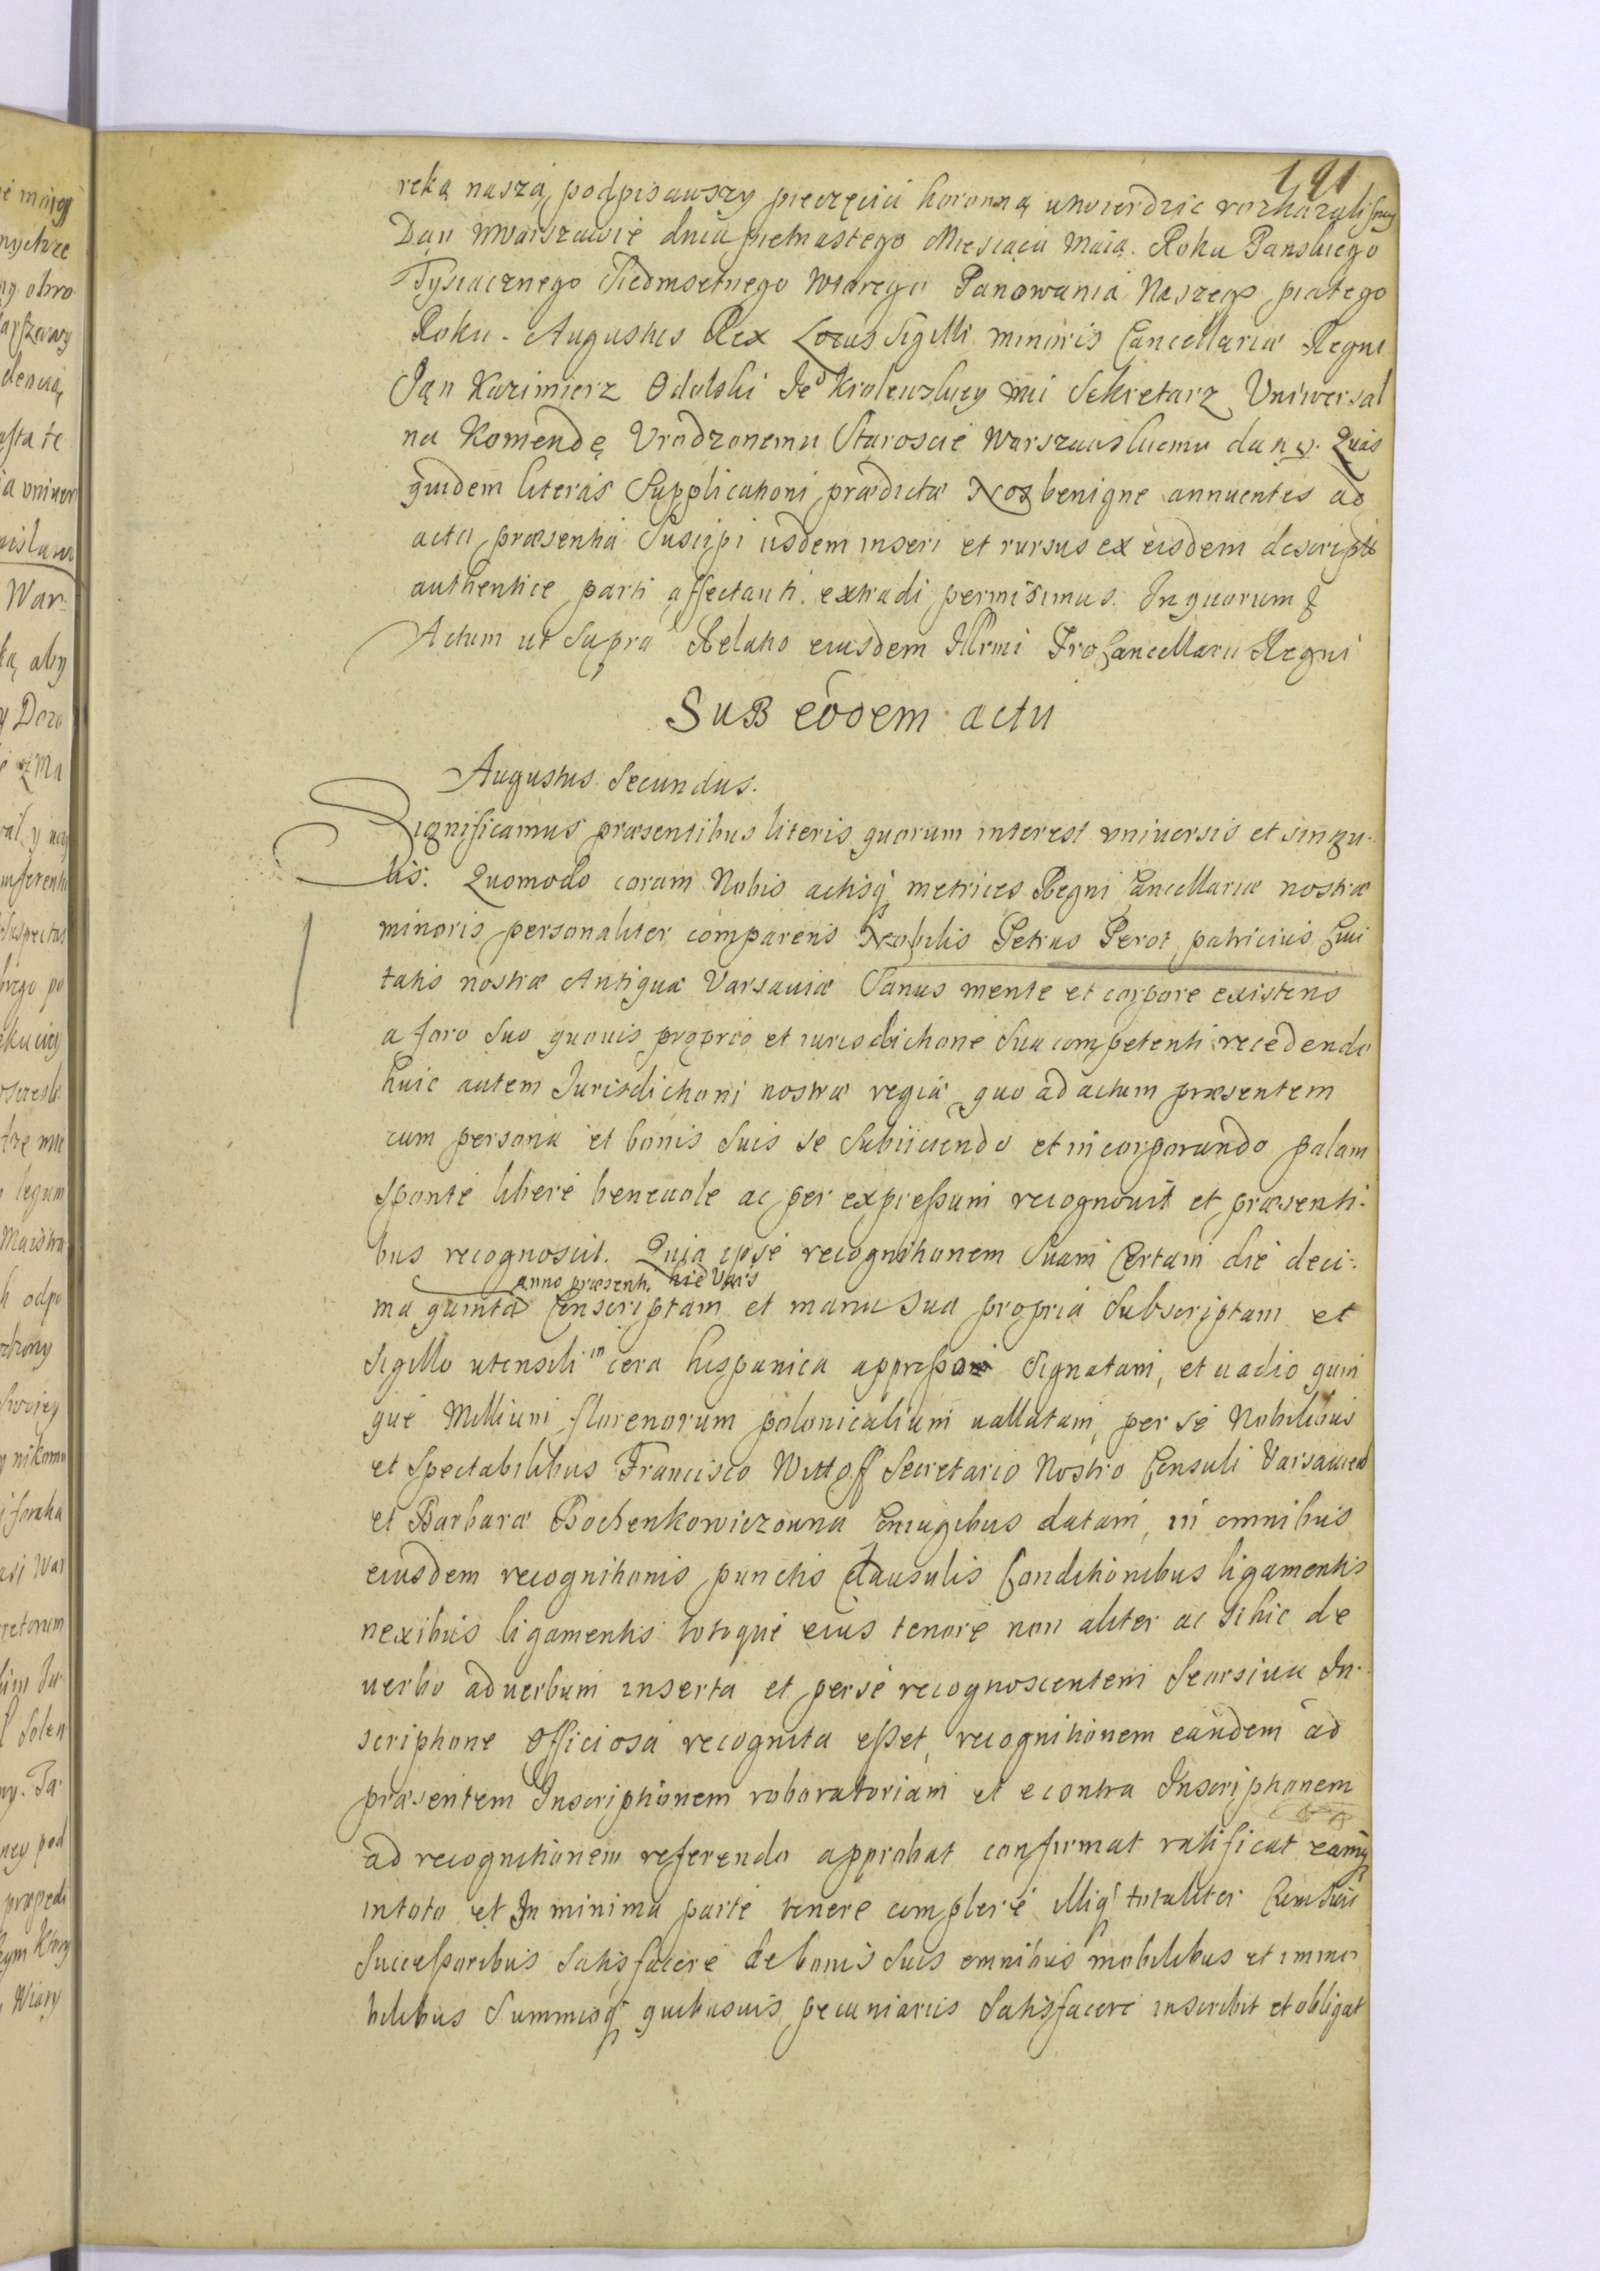 191
reką naszą podpisawszy pieczęcią koronną utwierdzic rozkazalismy
Dan wWarszawie dnia pietnastego Miesiąca Maia. Roku Panskiego
Tysiacznego Siedmsetnego wtorego Panowania Naszego piątego
Roku. Augustus Rex Locus Sigilli minoris Cancellariæ Regni
Jan Kazimierz Odolski Jeo Krolewskiey mci Sekretarz Uniwersal
na Komendę Urodzonemu Staroscie Warszawskiemu dany. Quas
quidem literas Supplicationi prædictæ Nos benigne annuentes ad
acta præsentia Suscipi iisdem inseri et rursus ex eisdem descripts
authentice parti affectanti extradi permisimus. In quorum
Actum ut Supra Relatio eiusdem Illrmi ProCancellarii Regni
SuB eodem actu
Augustus Secundus.
Significamus præsentibus literis quorum interest vniuersis et singu-
lis. Quomodo coram Nobis actisq metrices Regni Cancellariæ nostræ
minoris personaliter comparens Nobilis Petrus Perot patricius Ciui
tatis nostræ Antiquæ Varsauiæ Sanus mente et corpore existens
a foro suo quouis proprio et iurisdictione sua competenti recedendo
huic autem Jurisdictioni nostræ regiæ quo ad actum præsentem
cum persona et bonis suis se subiiciendo et incorporando palam
sponte libere beneuole ac per expressum recognouit et præsenti-
bus recognoscit. Quia ipse recognitionem suam Certam die deci-
anno præsenti hic Vars
ma quinta Conscriptam et manu sua propria subscriptam et
Sigillo utensili in cera hispanica appresso signatam, et uadio quin
que Millium florenorum polonicalium uallatam, per se Nobilibus
et Spectabilibus Francisco Wittoff Secretario Nostro Consuli Varsauien
et Barbaræ Bochenkowiczowna Coniugibus datam, in omnibus
eiusdem recognitionis punctis Clausulis Conditionibus ligamentis
nexibus ligamentis totoque eius tenore non aliter ac si hic de
uerbo ad uerbum inserta et per se recognoscentem Seorsiua In-
scriptione Officiosa recognita esset, recognitionem eandem ad
præsentem Inscriptionem roboratoriam et econtra Inscriptionem
ad recognitionem referendo approbat confirmat ratificat eamq
in toto et In minima parte tenere complere illiq totaliter Cum suis
Successoribus satisfacere de bonis suis omnibus mobilibus et immo
bilibus Summisq quibusuis pecuniariis satisfacere inscribit et obligat